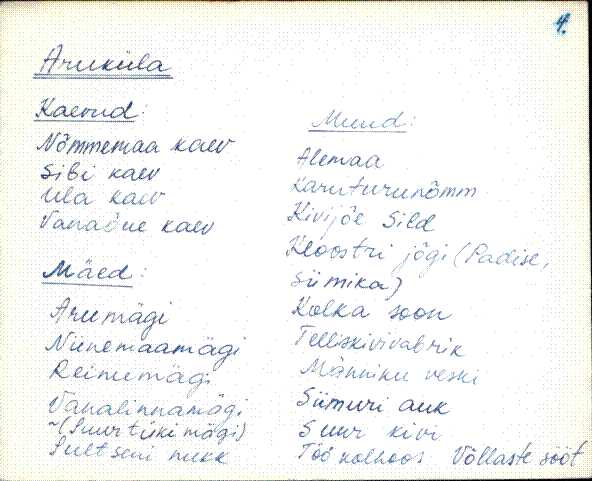 4.
Aruküla
Kaevud:
Nõmmemaa kaev
Sibi kaev
Ula kaev
Vanaõue kaev
Mäed:
Arumägi
Niinemaamägi
Reinumägi
Vanalinnamägi
~(Suurtüki mägi)
Sultseni nukk
Muud:
Alemaa
Karuturunõmm
Kivijõe Sild
Kloostri jõgi (Padise,
Siimika)
Kolka soon
Telliskivivabrik
Männiku veski
Siimuri auk
Suur kivi
Töö kolhoos Võllaste sööt